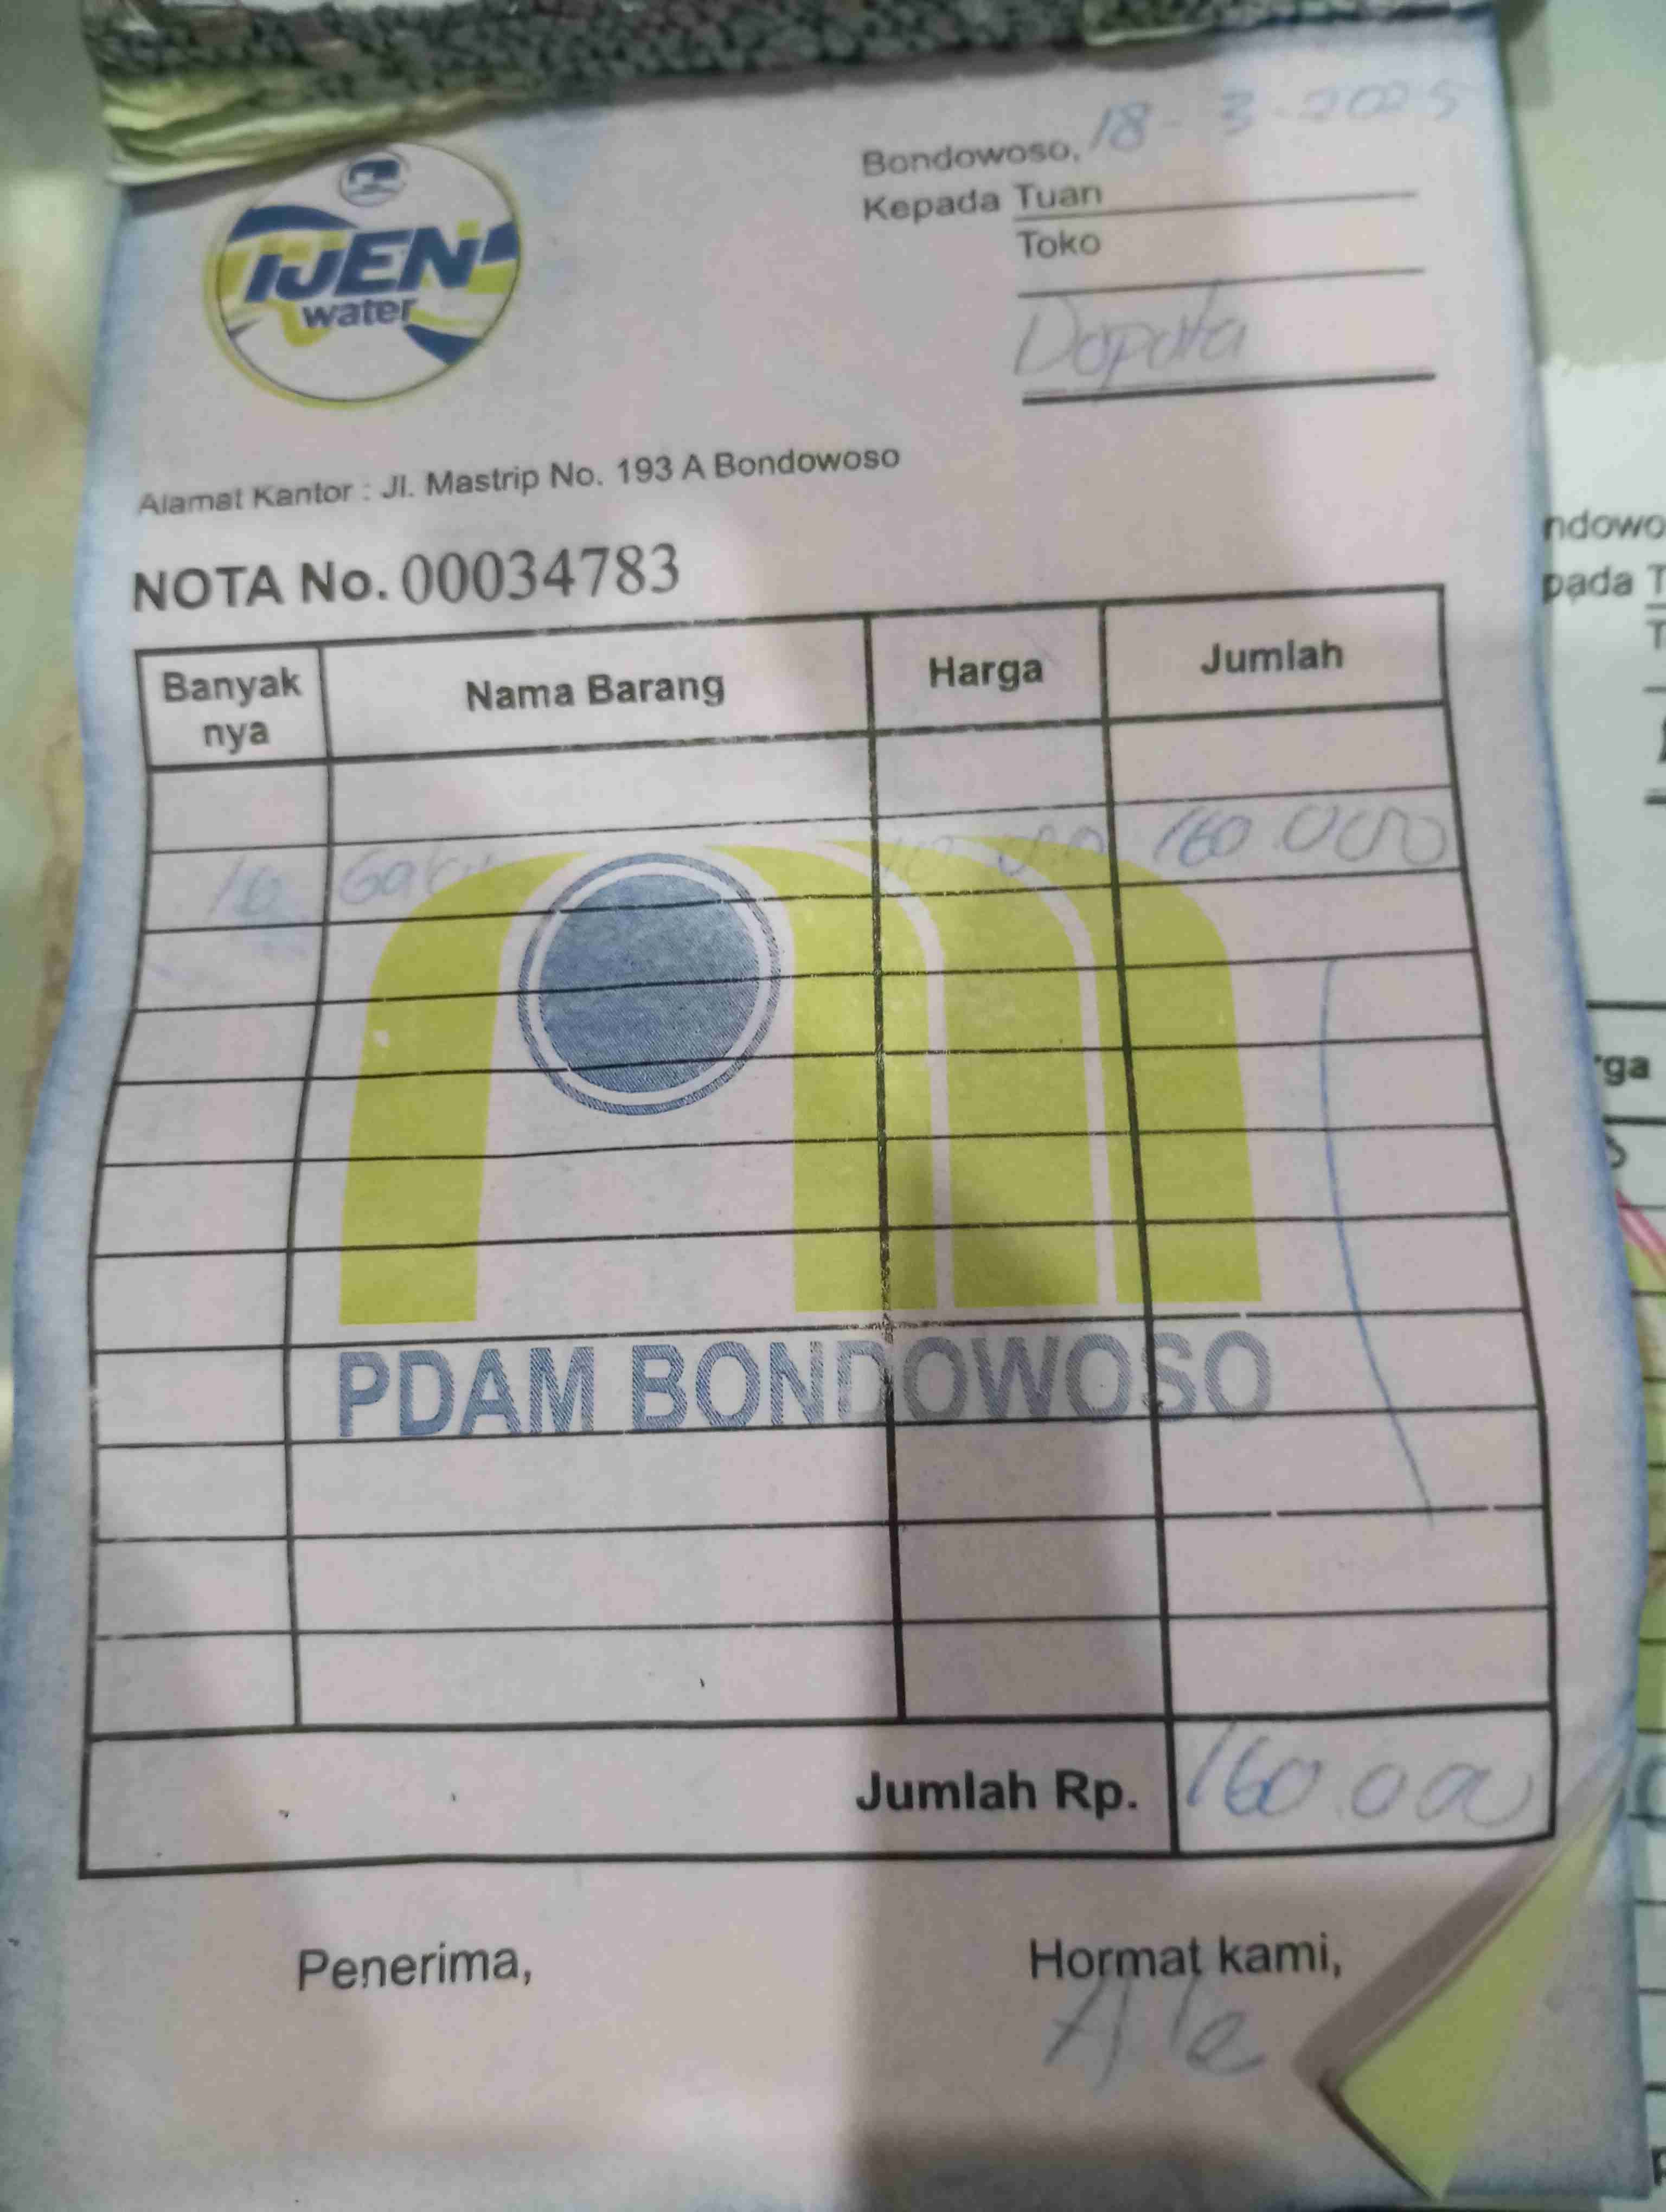 IJEN
water
Bondowoso, 18-3-2025
Kepada Tuan
Toko
Dapota
Alamat Kantor : Jl. Mastrip No. 193 A Bondowoso
NOTA No. 00034783
Banyak nya Nama Barang Harga Jumlah
16 Galon 10.000 160.000
PDAM BONDOWOSO
Jumlah Rp. 160.000
Penerima, Hormat kami,
Ale
ndowo
pada T
T
rga